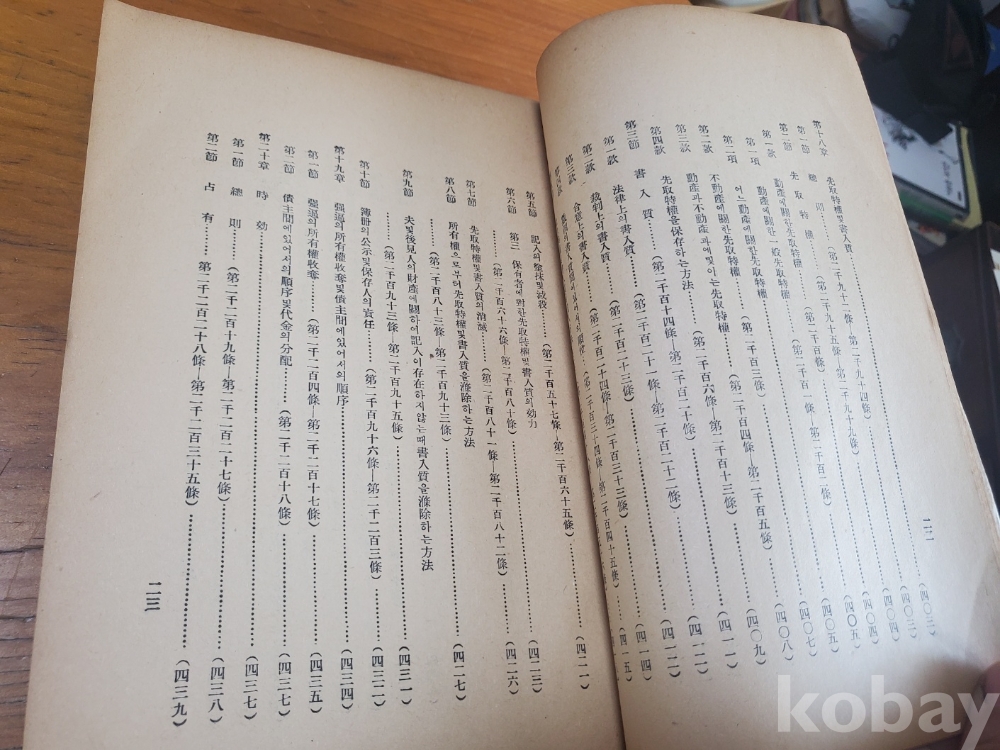 第十八章 先取特權및書入質……(四〇三)
第一節 總則 (第二千九十二條—第二千九十四條)……(四〇三)
第二節 先取特權 (第二千九十五條—第二千九十九條)……(四〇四)
第一款 動產에關한先取特權 (第二千百條)……(四〇五)
第一項 動產에關한一般先取特權 (第二千百一條)……(四〇五)
第二項 어느動產에關한先取特權 (第二千百二條)……(四〇七)
第二款 不動產에關한先取特權 (第二千百三條)……(四〇八)
第三款 動產과不動產과에및이는先取特權 (第二千百四條—第二千百五條)……(四〇九)
第四款 先取特權을保存하는方法 (第二千百六條—第二千百十三條)……(四一一)
第三節 書入質 (第二千百十四條—第二千百二十條)……(四一二)
第一款 法律上의書入質 (第二千百二十一條—第二千百二十二條)……(四一二)
第二款 裁判上의書入質 (第二千百二十三條)……(四一四)
第三款 合意上의書入質 (第二千百二十四條—第二千百三十三條)……(四一五)
第四款 (第二千百三十四條—第二千百四十五條)
二二
第五節 記入의塗抹및減殺 (第二千百五十七條—第二千百六十五條)……(四二一)
第六節 第三保有者에對한先取特權및書入質의効力
(第二千百六十六條—第二千百八十條)……(四二三)
第七節 先取特權및書入質의消滅 (第二千百八十一條—第二千百八十二條)……(四二六)
第八節 所有權으로부터先取特權및書入質을滌除하는方法
(第二千百八十三條—第二千百九十三條)……(四二七)
第九節 夫및後見人의財產에關하여記入이存在하지않는때書入質을滌除하는方法
(第二千百九十三條—第二千百九十五條)……(四三一)
第十節 簿冊의公示및保存人의責任 (第二千百九十六條—第二千二百三條)……(四三二)
第十九章 强逼의所有權收奪및債主間에있어서의順序……(四三四)
第一節 强逼의所有權收奪 (第二千二百四條—第二千二百十七條)……(四三五)
第二節 債主間에있어서의順序및代金의分配……(第二千二百十八條)……(四三七)
第二十章 時効……(四三七)
第一節 總則 (第二千二百十九條—第二千二百二十七條)……(四三八)
第二節 占有……第二千二百二十八條—第二千二百三十五條)……(四三九)
二三
kobay